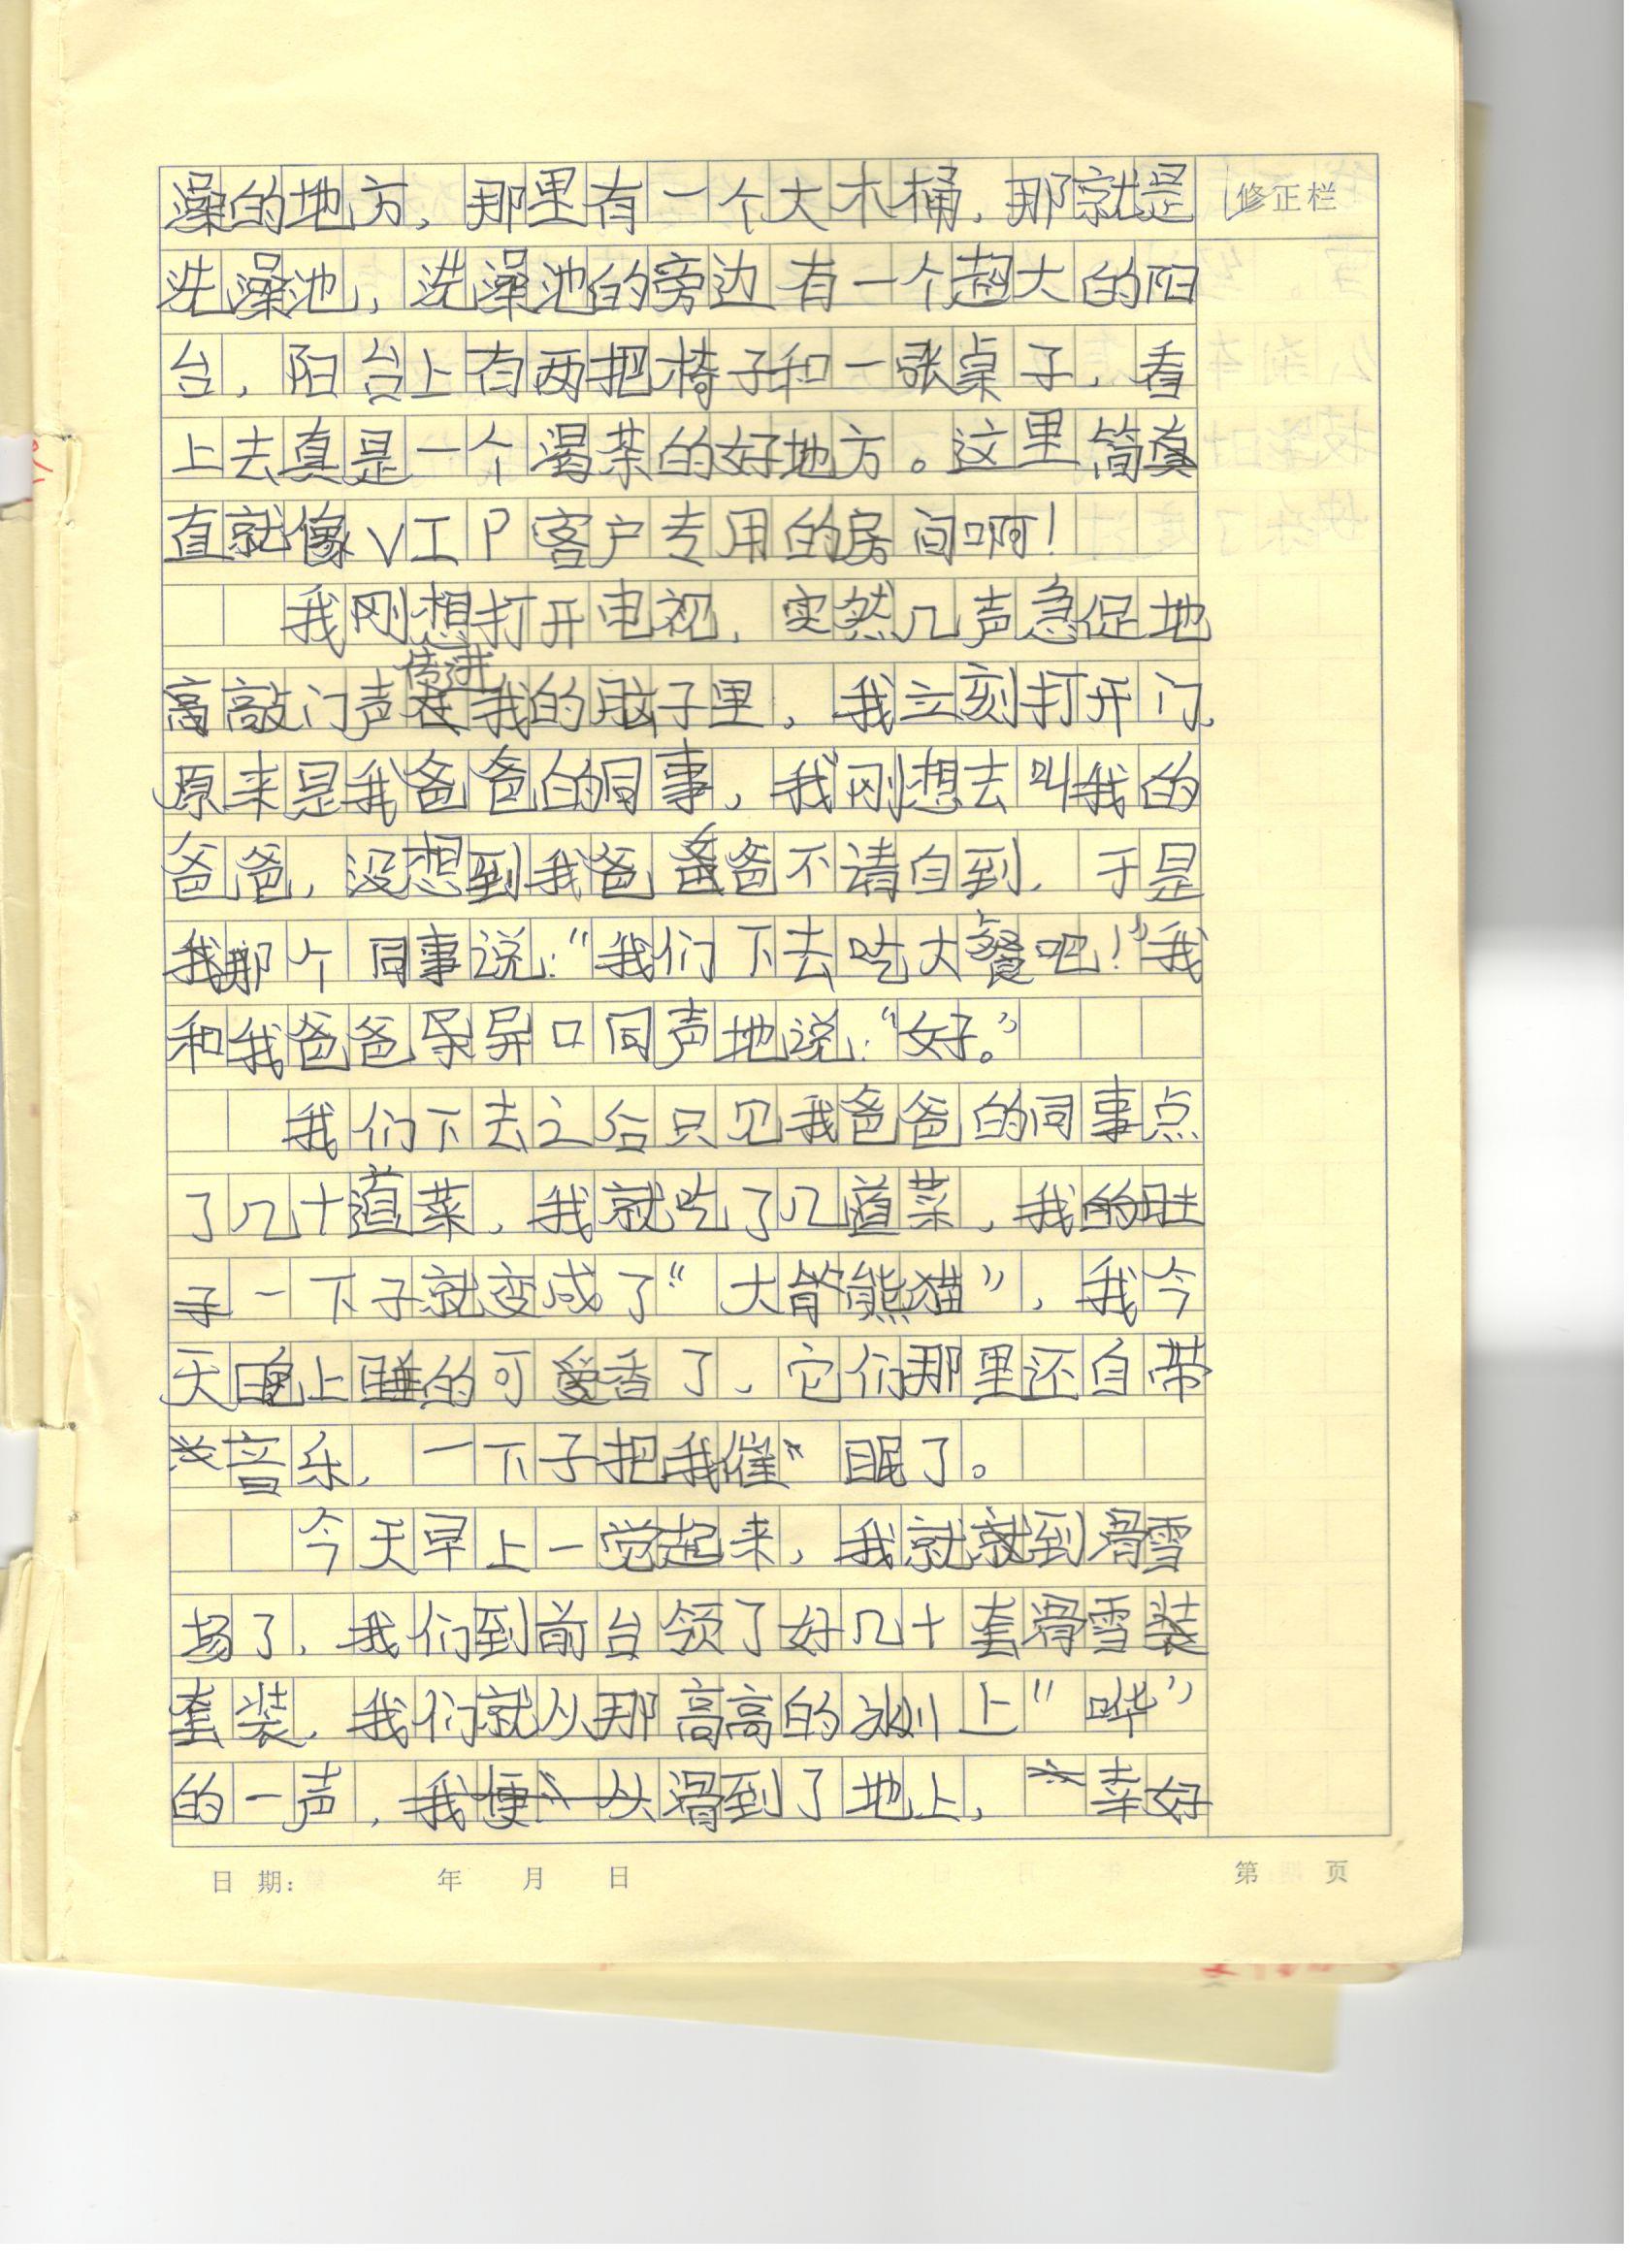 澡的地方，那里有一个大木桶，那就是
修正栏
洗澡池，洗澡池的旁边有一个超大的阳
台，阳台上有两把椅子和一张桌子，看
上去真是一个渴茶的好地方。这里简真
直就像VIP客户专用的房间啊！
我刚想打开电视，突然几声急促地
高敲门声传进我的脑子里，我立刻打开门，
原来是我爸爸的同事，我刚想去叫我的
爸爸，没想到我爸爸不请自到，于是
我那个同事说：“我们下去吃大餐吧！”我
和我爸爸异口同声地说：“好。”
我们下去之后只见我爸爸的同事点
了几十道菜，我就吃了几道菜，我的肚
子一下子就变成了“大熊猫”，我今
天晚上睡的可香了，它们那里还自带
音乐，一下子把我催眠了。
今天早上一觉起来，我就就到滑雪
场了，我们到前台领了好几十套滑雪装
套装，我们就从那高高的冰川上“哗”
的一声，滑到了地上，幸好
日期： 年 月 日
第 页